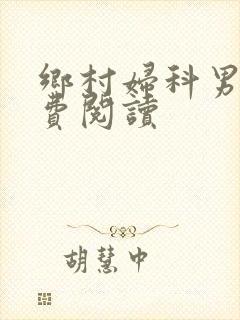 鄉村婦科男
費閱讀
胡慧中